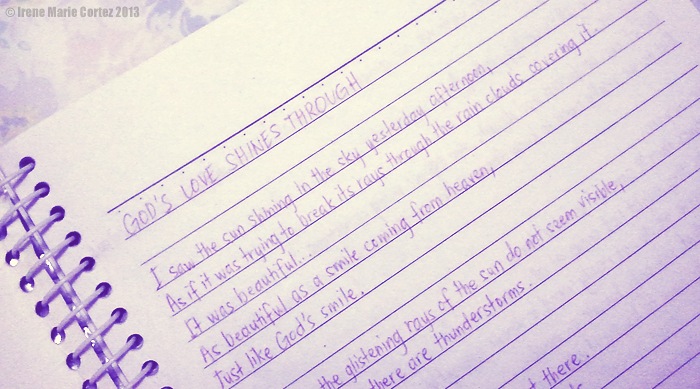 © Irene Marie Cortez 2013
GOD'S LOVE SHINES THROUGH
I saw the sun shining in the sky yesterday afternoon,
As if it was trying to break its rays through the rain clouds covering it.
It was beautiful...
As beautiful as a smile coming from heaven,
Just like God's smile.
the glistening rays of the sun do not seem visible,
there are thunderstorms.
there.